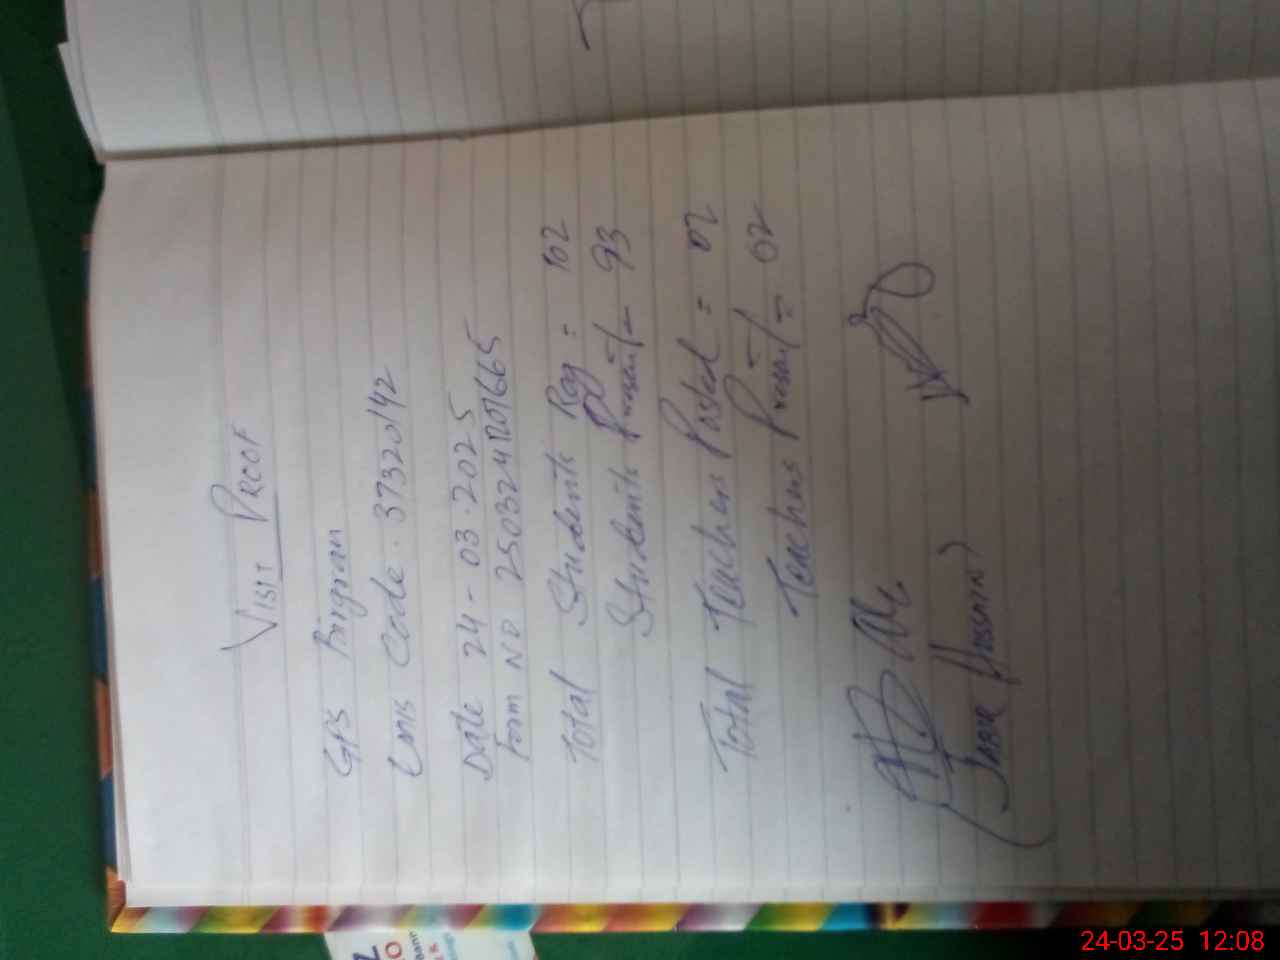 VISIT PROOF
GPS Bingran
Emis Code . 37320142
Date 24 - 03 - 2025
Form NO 2503241201665
Total Students Reg = 102
Students Present = 93
Total Teachers Posted = 02
Teachers Present = 02
Hussain)
24-03-25 12:08